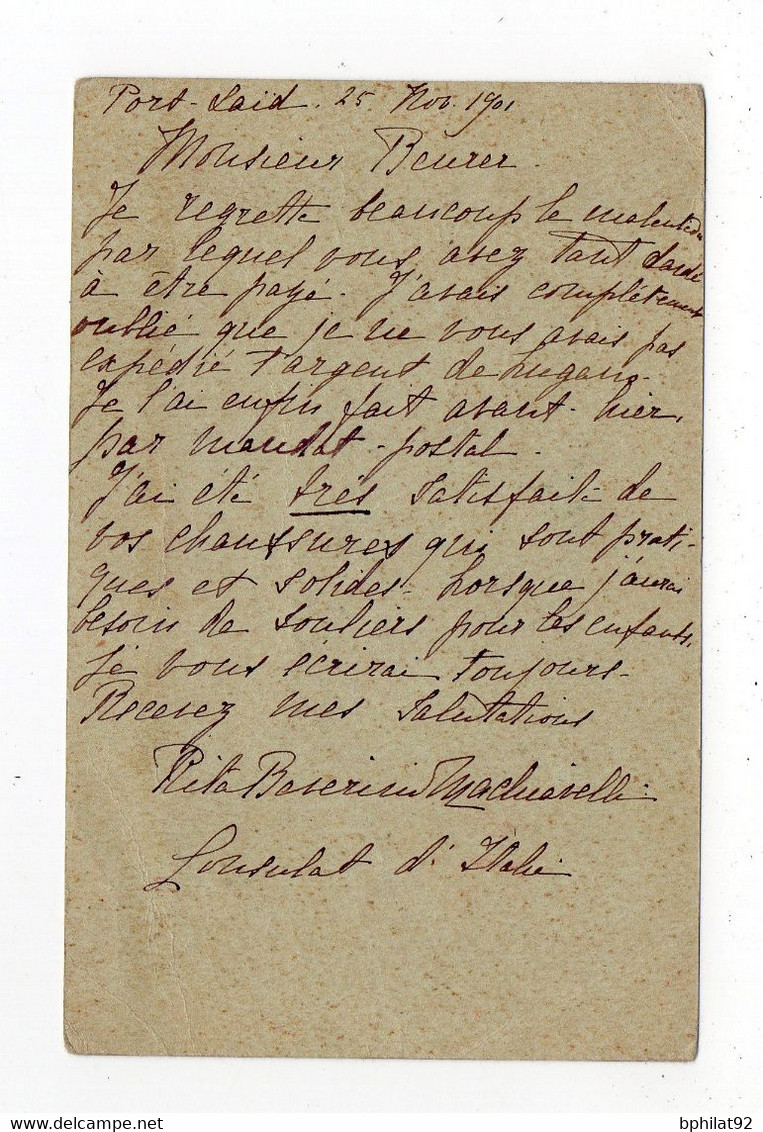 Port-Saïd. 25. Nov. 1901
Monsieur Beurer.
Je regrette beaucoup le malentendu
par lequel vous avez tant tardé
à être payé. J'avais complètement
oublié que je ne vous avais pas
expédié l'argent de Lugano.
Je l'ai enfin fait avant-hier,
par mandat-postal.
J'ai été très satisfaite de
vos chaussures qui sont prati-
ques et solides. Lorsque j'aurai
besoin de souliers pour les enfants,
je vous écrirai toujours.
Recevez mes salutations
Rita Machiavelli
Consulat d'Italie
Delcampe.net
bphilat92